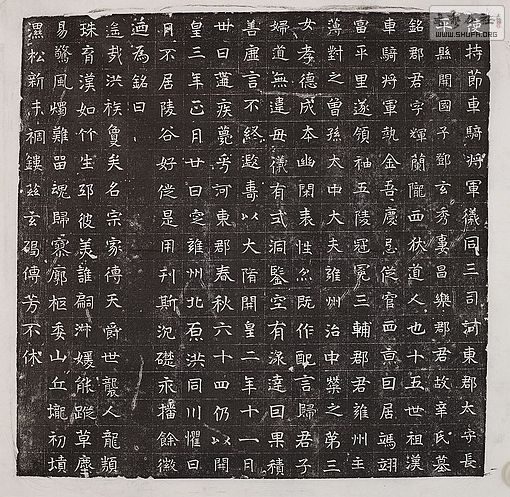 持節車騎將軍儀同三司河東郡太守長
縣開國子鄧玄秀妻昌樂郡君故辛氏墓
銘郡君字輝蘭隴西狄道人也十五世祖漢
車騎將軍執金吾慶忌從官西京曰居馮翊
富平里遂領袖五陵冠冕三輔郡君雍州主
薄對之曾孫太中大夫雍州治中粲之第三
女孝德成本幽閑表性忽既作配言歸君子
婦道無違母儀有式洞鑒空有泳達因果積
善虛言不終遐壽以大隋開皇二年十一月
廿日遘疾薨于河東郡春秋六十四仍以開
皇三年正月廿日空雍州北原洪同川懼日
月不居陵谷好從是用刊斯沉礎永播餘徽
迺為銘曰
遙哉洪族敻矣名宗家傳天爵世襲人龍類
珠育漢如竹生邛彼美誰嗣淋媛能蹤草塵
易驚風燭難留魂歸寥廓柩委山丘壠初墳
濕松新未稠鐫茲玄碣傳芳不休
WWW.SHUFA.ORG